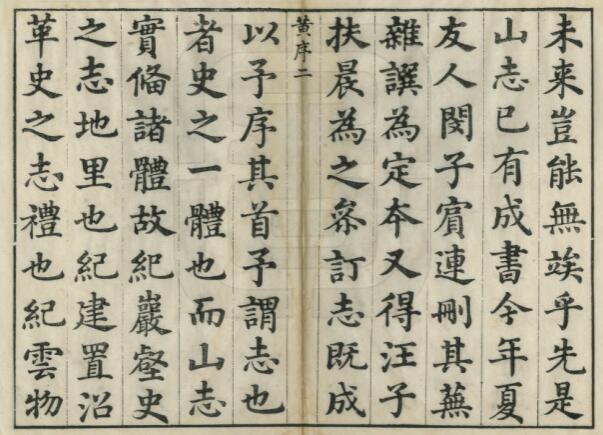 未来豈能無竢乎先是
山志已有成書今年夏
友人閔子賔連刪其蕪
雜譔為定夲又得汪子
扶晨為之叅訂志既成
黄序二
以予序其首予謂志也
者史之一體也而山志
實俻諸體故紀巖壑史
之志地里也紀建置沿
革史之志禮也紀雲物